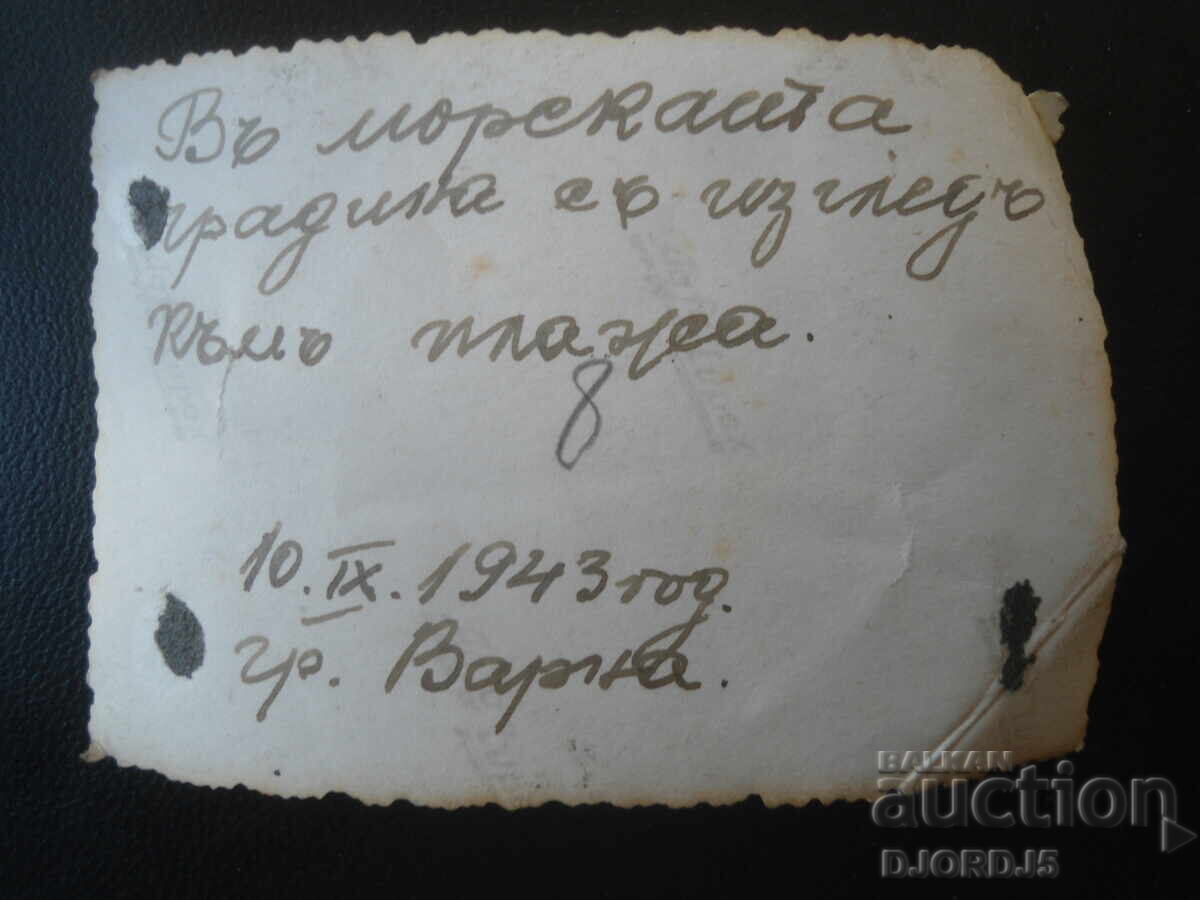 Въ морската
градина съ изгледъ
към плажа.
8
10.IX.1943 год.
гр. Варна.
BALKAN
auction
DJORDJ5